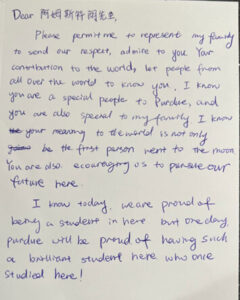 Dear 阿姆斯特朗先生,
Please permit me to represent my family
to send our respect, admire to you. Your
contribution to the world, let people from
all over the world to know you. I know
you are a special people to Purdue, and
you are also special to my family. I know
your meaning to the world is not only
be the first person went to the moon.
You are also ecouraging us to persue our
future here.
I know today, we are proud of
being a student in here but one day,
purdue will be proud of having such
a brilliant student here who once
studied here!